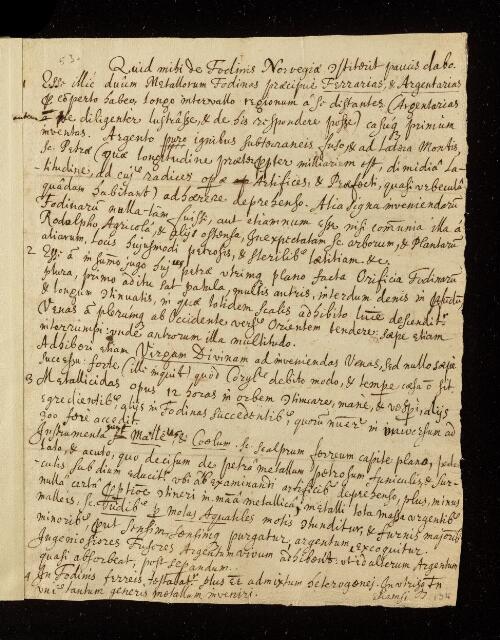 53.
Quid mihi de Fodinis Norvegiæ constiterit paucis dabo.
Esse illic duûm Metallorum Fodinas præcipuè Ferrarias, & Argentarias
comperto habeo, longo intervallo regionum à se distantes (Argentarias
autem me diligenter lustrâsse, & de his respondere posse) casuq primùm
inventas. Argento puro ignibus subterraneis fuso, & ad latera Montis,
sc. Petræ (quæ longitudine præter propter milliarium est, dimidiâ La-
titudine, ad cuius radices Artifices, & Præfecti, quasi urbeculâ
quâdam habitant) adhærere deprehenso. Alia signa inveniendorũ
Fodinarũ nulla fuisse, aut etiamnum esse nisi communia illa à
Rodolpho Agricola, & aliis ostensa, Inexpectatam sc. arborum, & Plantarũ
aliarum, locis hujusmodi petrosis, & sterilibus lætitiam, &c.
2 Esse in summo jugo hujus petræ utrimq plano facta Orificia Fodinarũ
plura, primo aditu sat patula, multis antris, interdum denis in
& longum continuatis, in quæ totidem scalis adhibito lumine descendit
Venas plerumq ab Occidente versus Orientem tendere sæpe etiam
interrumpi: unde antrorum illa multitudo.
Adhiberi etiam Virgam Divinam ad inveniendas Venas, sed nullo sæpe
Successu: forte (illi inquiunt) quòd Corylus debito modo, & tempe cæsa non sit
3 Metallicidas opus 12 horas in orbem continuare, manè, & vesperi, aliis
egredientibus, aliis in Fodinas succedentibus, quorũ numerus in universum ad
700 ferè accedit.
Instrumenta sunt Malleus & Cœlum. sc. scalprum ferreum capite plano, pede
lato, & acuto, quo decisum de petrâ metallum petrosum funiculis, & sur-
culis sub dium educitur ubi ab examinandi artificibus deprehenso, plus, minus
nullâ certâ proportione contineri in massâ metallicâ, metalli tota massa argentibus
malleis, sc. Tudibus & molas Aquatiles motis contunditur, & furnis majoribus
minoribus sensim sensimq purgatur, argentum excoquitur.
Ingeniosiores Fusores Argentum vivum adhibent, ut id alterum Argentum
quasi absorbeat, post separandum.
4 In Fodinis ferreis testatur plus esse admixtum heterogenei. In utrisq tñ
unius tantum generis metallum inveniri.
etiamsi